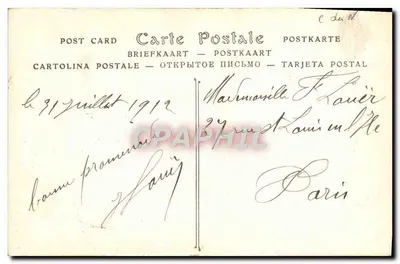 C du N
POST CARD Carte Postale POSTKARTE
BRIEFKAART — POSTKAART
CARTOLINA POSTALE — ОТКРЫТОЕ ПИСЬМО — TARJETA POSTAL
le 31 juillet 1912
bonne promenade
Mademoiselle F Louër
27 rue St Louis en l'Ile
Paris
CPAPHIL